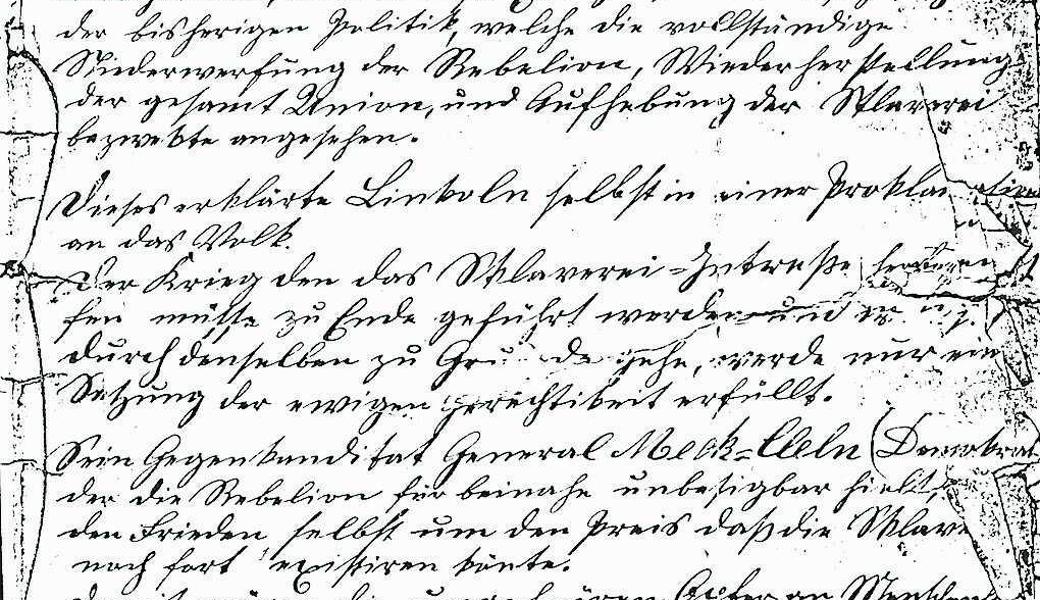 der bisherigen Politik, welche die vollständige
Niederwerfung der Rebelion, Wiederherstellung
der gesamt Union, und Aufhebung der Sklaverei
bezwekte angesehen.
Dieses erklärte Linkoln selbst in einer Proklamation
an das Volk.
Der Krieg den das Sklaverei-Intreße
fen müsse zu Ende geführt werden und
durch denselben zu Grunde gehe, werde nur ein
Setzung der ewigen gerechtikeit erfüllt.
Sein Gegenkanditat General Meck-Cleln (Demokrat
der die Rebelion für beinahe unbesigbar hielt,
den Frieden selbst um den Preis daß die Sklave
noch fort existiren könte.
Opfer an Menschen